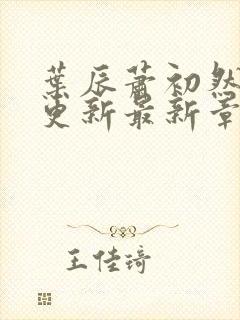 葉辰蕭初然
更新最新章
王佳琦